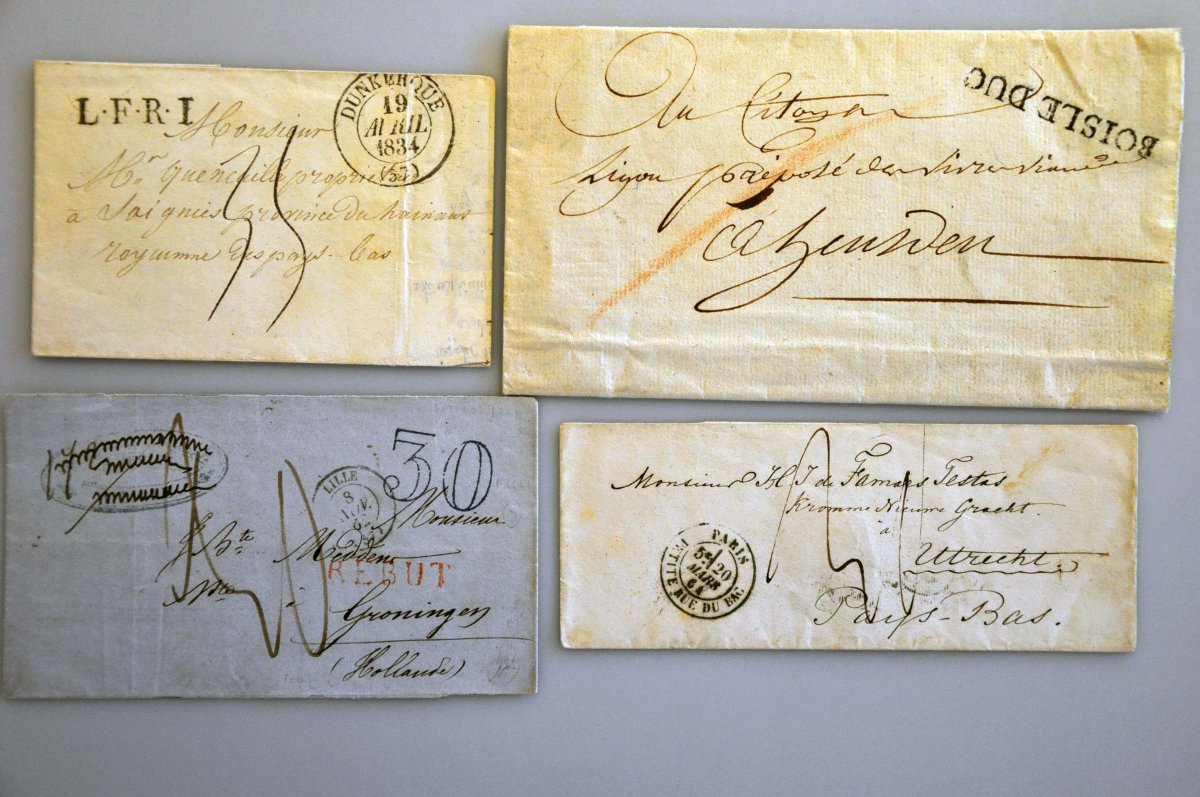 L·F·R·I
DUNKERQUE
19
AVRIL
1834
(57)
Monsieur
Mr quenouille propriétaire
à Soignies province du hainaut
royaume des pays-bas
BOISLEDUC
Au Citoyen
préposé des vivres viande
à heusden
30
LILLE
8
NOV.
Monsieur
J. Bte Meddens
REBUT
Groningen
(Hollande)
Monsieur H J de Famars Testas
Kromme Nieuwe Gracht.
à
Uttrecht
Pays-Bas.
PARIS
5E 20
MARS
64
PETITE RUE DU BAC